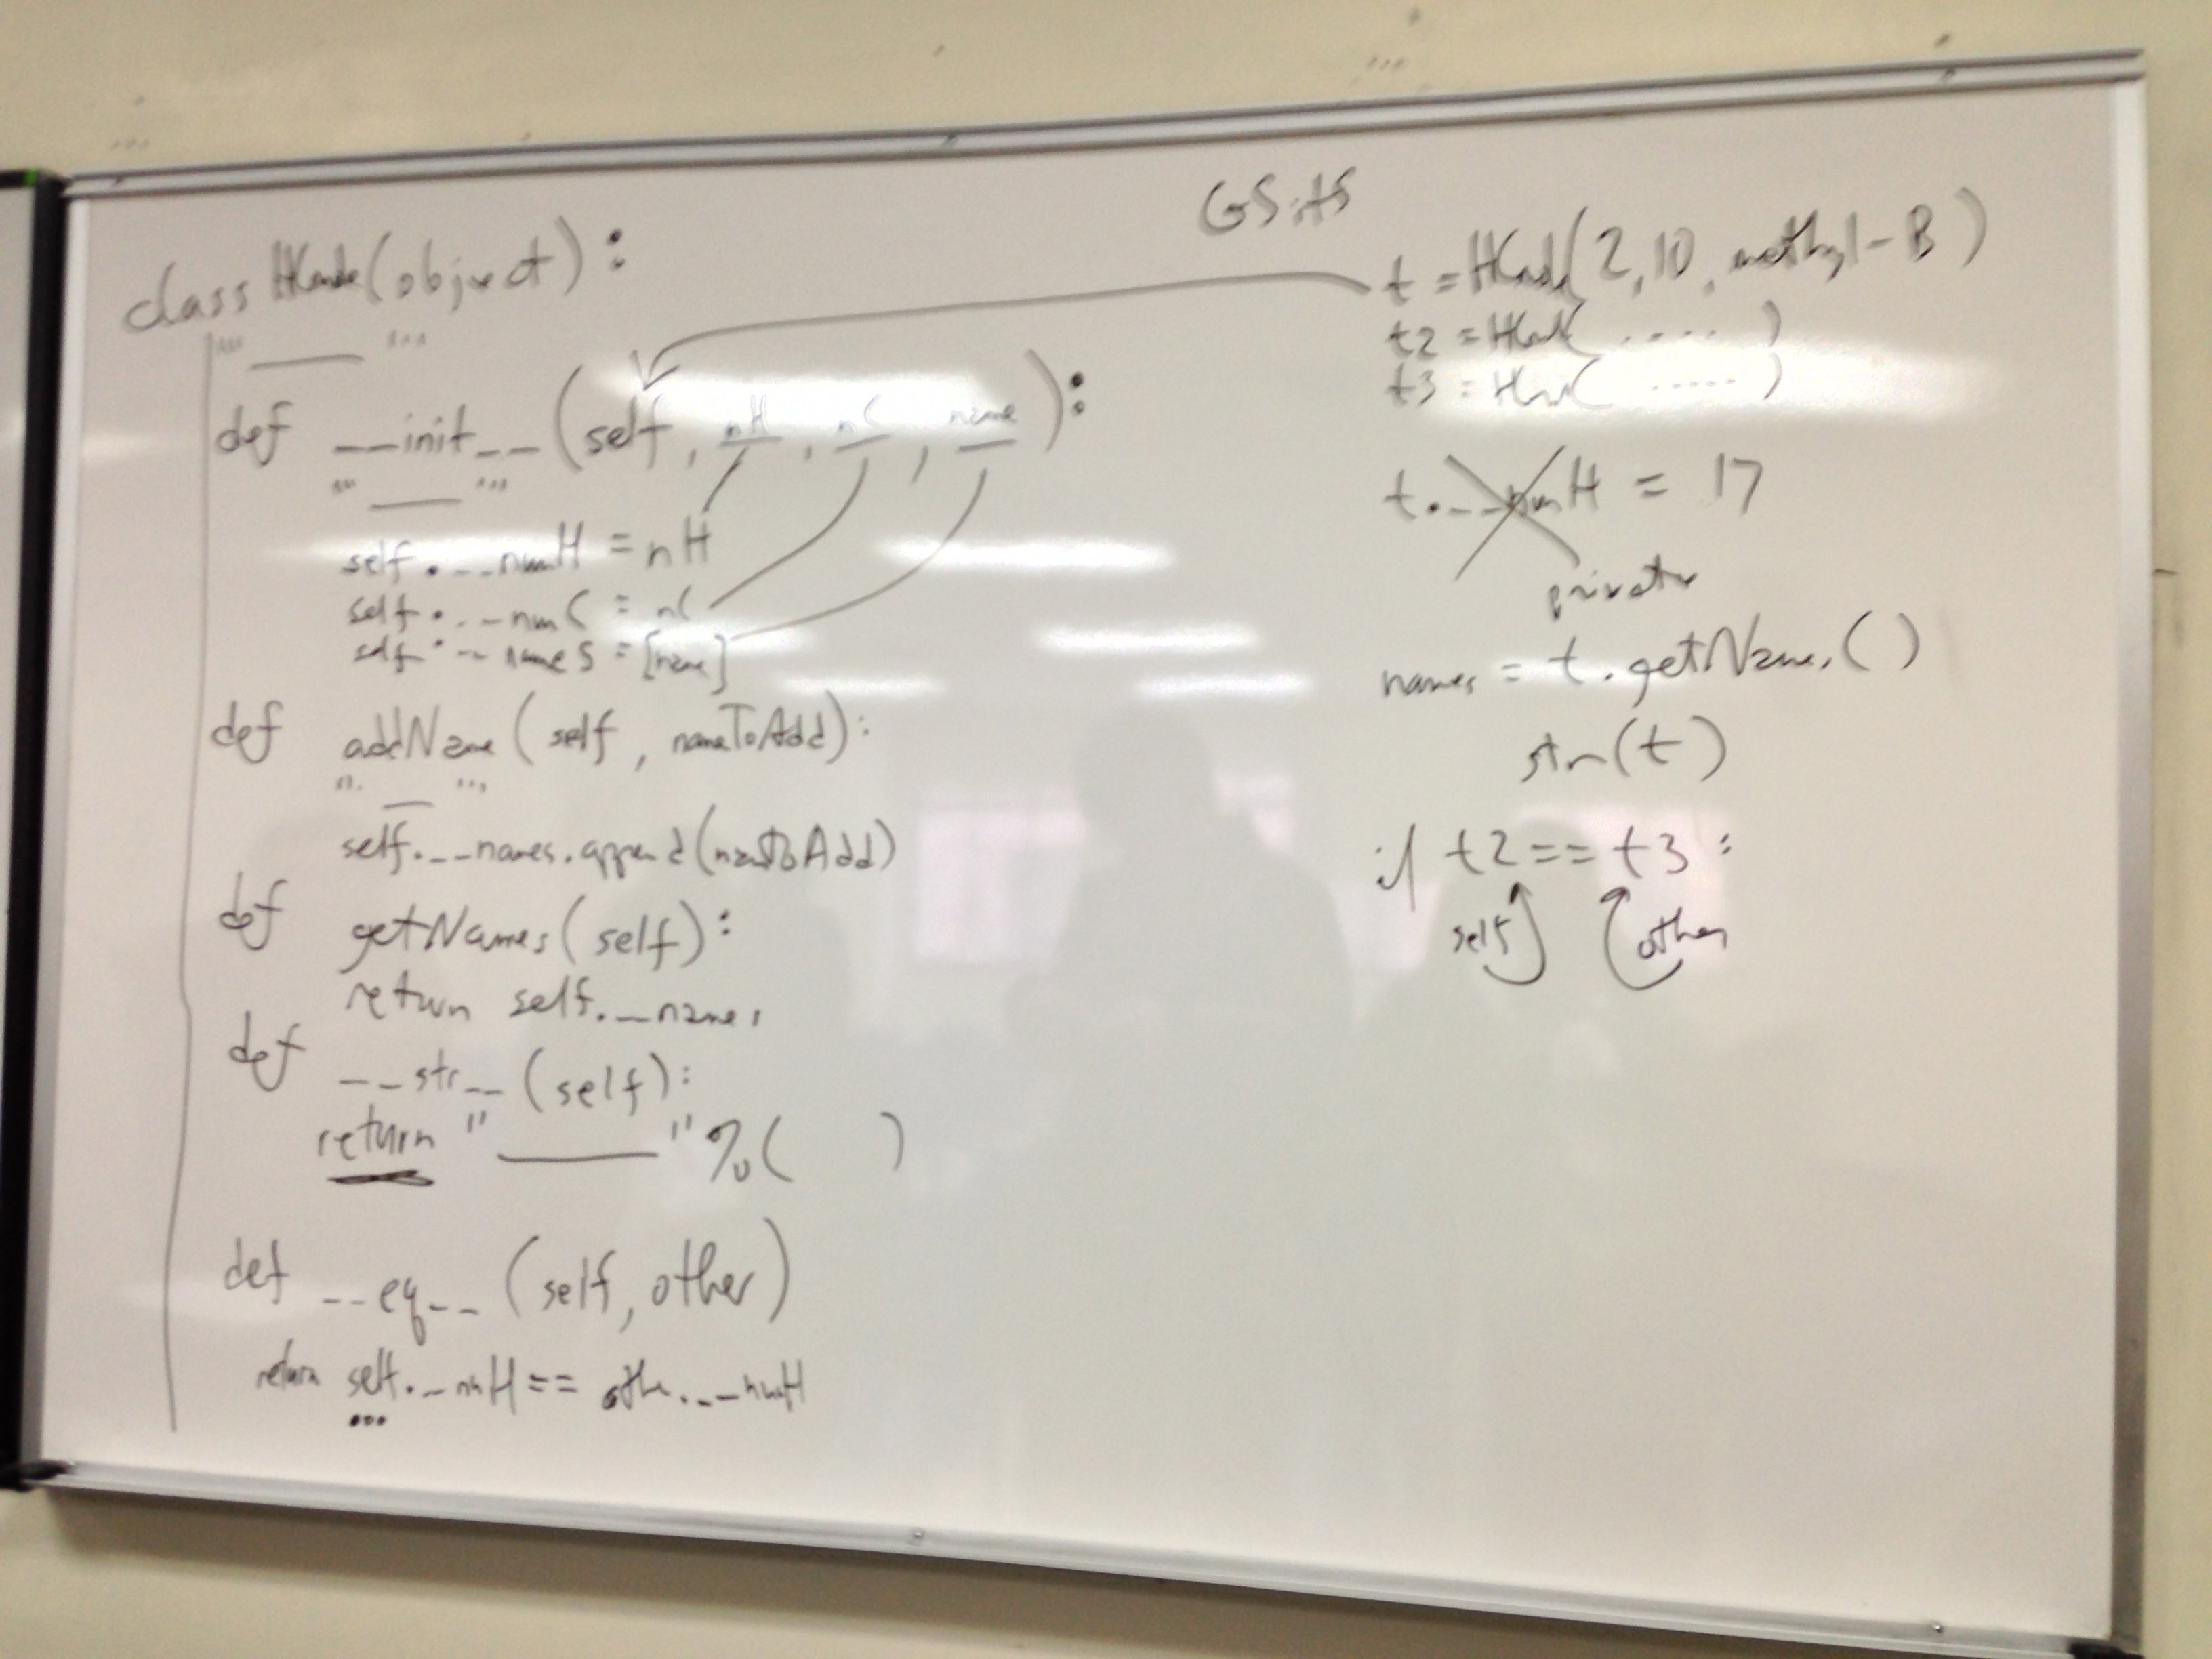 class HCnode(object):
""" ___ """
def __init__(self, nH, nC, name):
""" ___ """
self.__numH = nH
self.__numC = nC
self.__names = [name]
def addName(self, nameToAdd):
""" ___ """
self.__names.append(nameToAdd)
def getNames(self):
return self.__names
def __str__(self):
return "______" %( )
def __eq__(self, other)
return self.__numH == other.__numH
...
t = HCnode(2, 10, methyl-B)
t2 = HCnode( ..... )
t3 = ( ..... )
t.__numH = 17
private
names = t.getNames()
str(t)
if t2 == t3:
self other